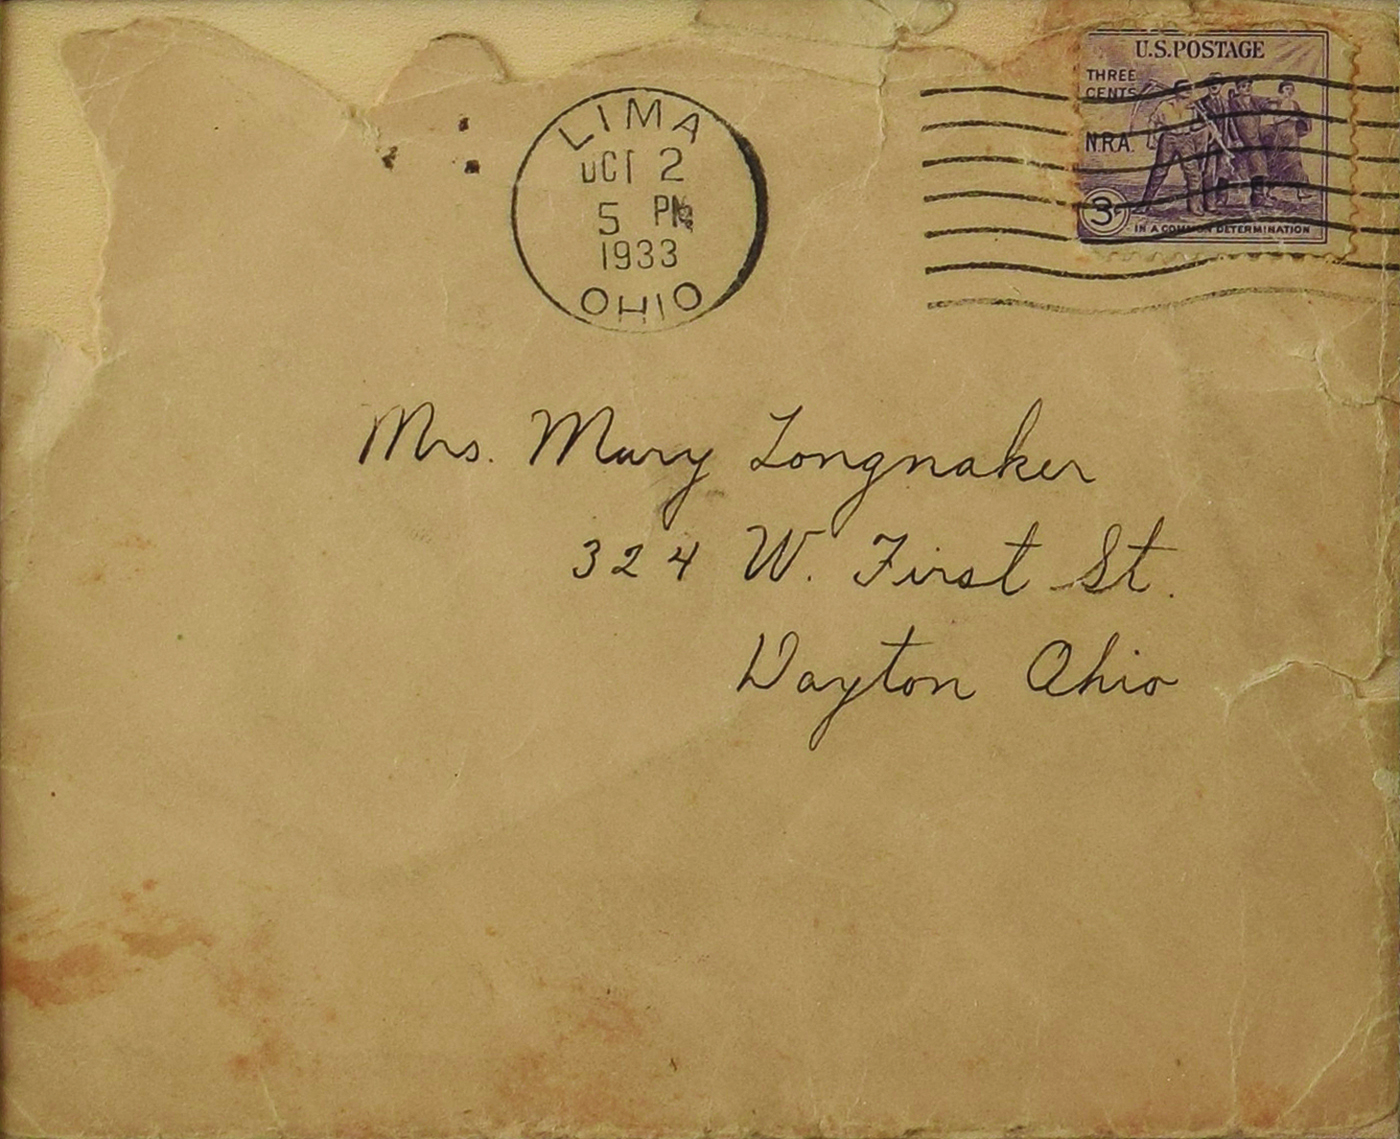 U.S. POSTAGE
THREE
CENTS
N.R.A.
3
IN A COMMON DETERMINATION
LIMA
OCT 2
5 PM
1933
OHIO
Mrs. Mary Longnaker
324 W. First St.
Dayton Ohio